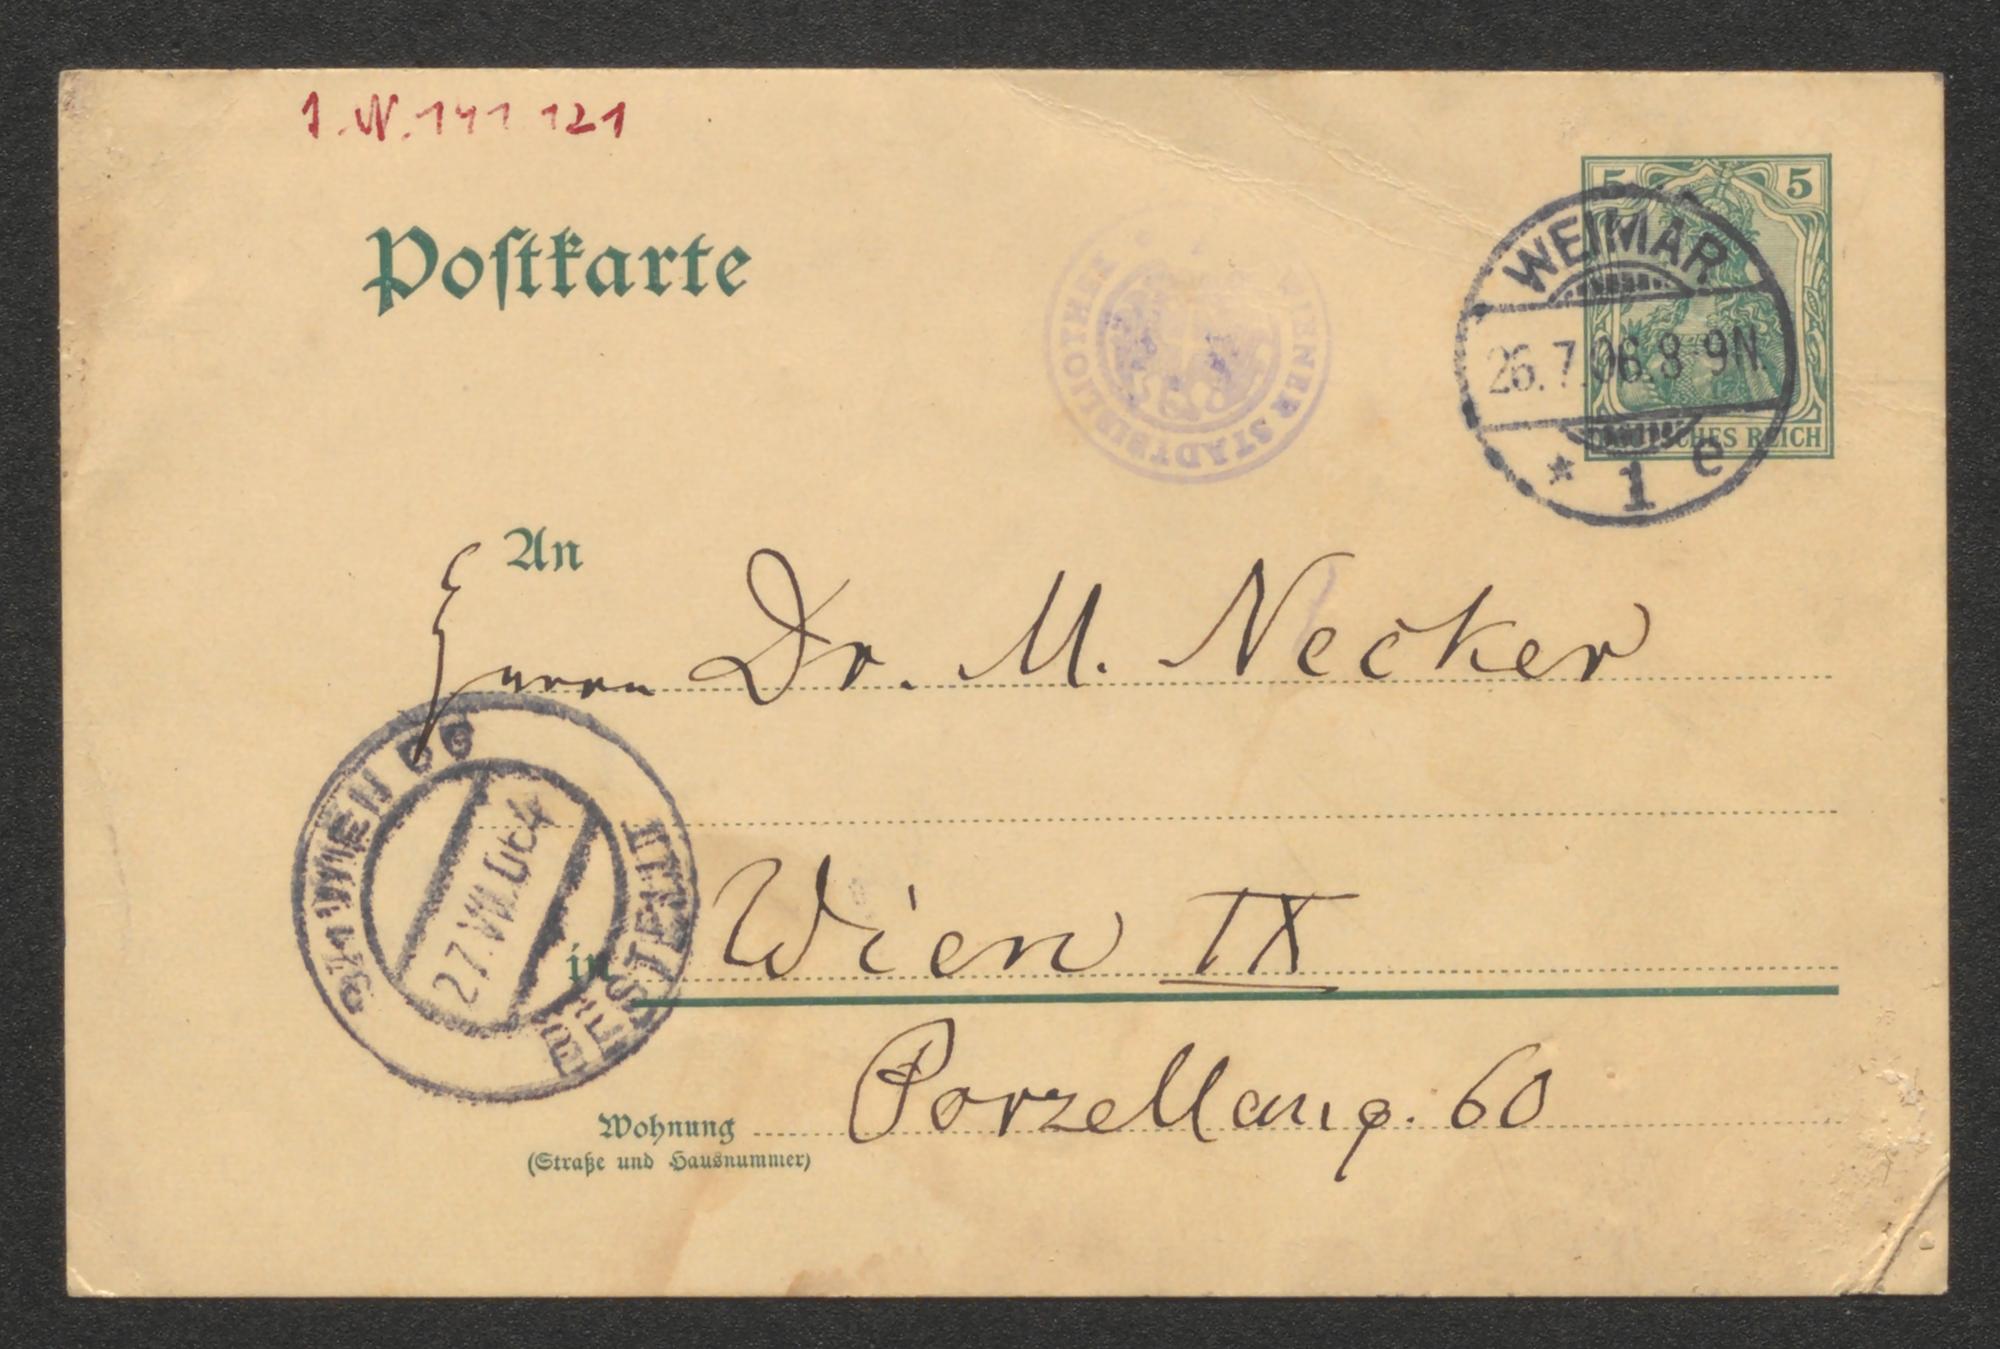 J.N. 141 121
Postkarte
WIENER STADTBIBLIOTHEK
5 5
DEUTSCHES REICH
WEIMAR
26.7.06.8-9N.
* 1 e
An
Herrn Dr. M. Necker
9/1 WIEN
27.VII.06
BESTELLT
in Wien IX
Wohnung Porzellang. 60
(Straße und Hausnummer)